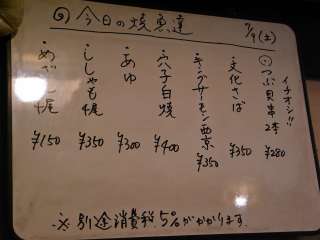 今日の焼魚達
7/9(土)
イチオシ!!
つぶ貝串2本 ¥280
文化さば ¥350
キングサーモン西京 ¥350
穴子白焼 ¥400
あゆ ¥300
ししゃも4尾 ¥350
めざし4尾 ¥150
※別途消費税5%がかかります。